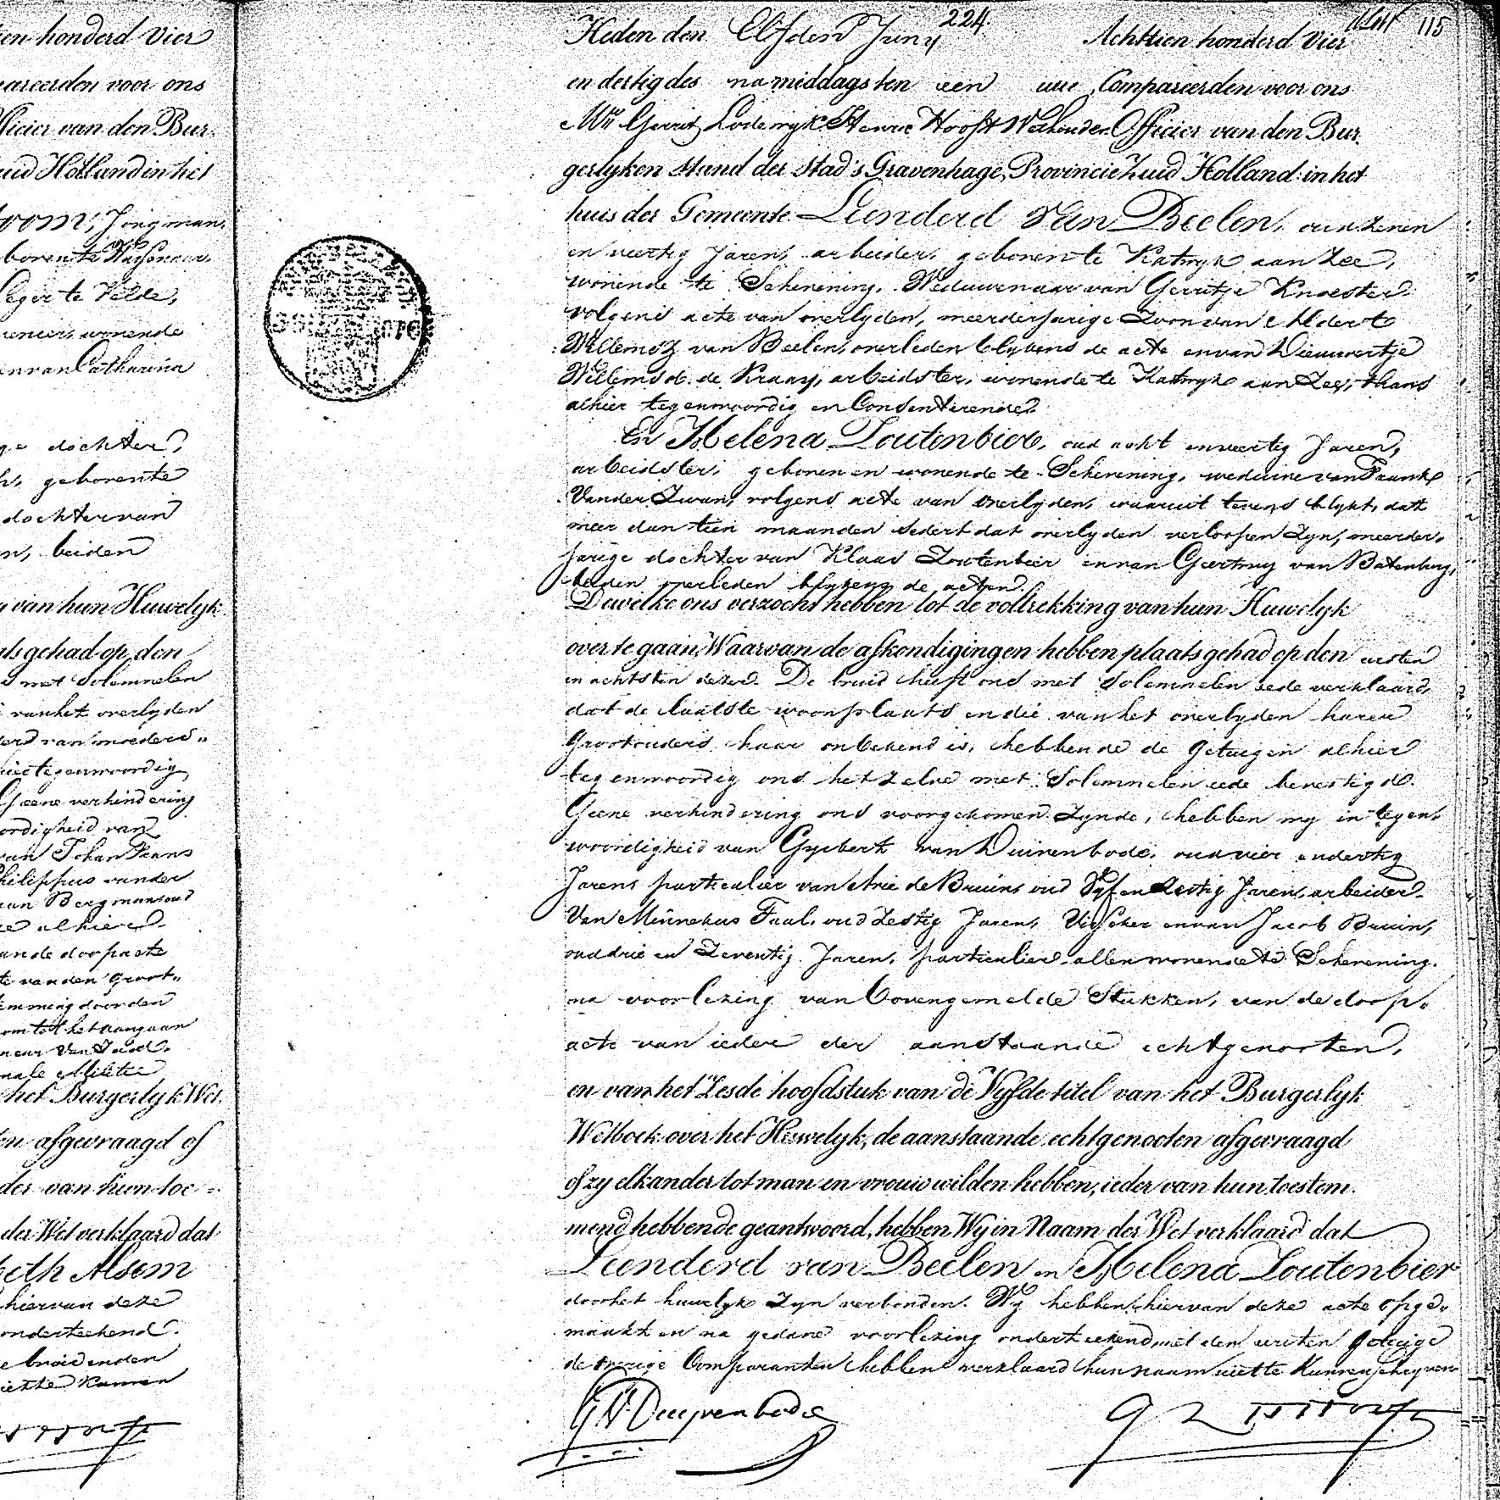 ien honderd Vier
pareerden voor ons
fficier van den Bur-
uid Holland in het
oom, Jongman,
boren te Wassenaar,
Leger te Velde,
wonende
en van Catharina
ge dochter,
geboren te
dochter van
en, beiden
g van hun Huwelijk
ats gehad op den
s met Solemnelen
van het overlyden
erd van moeders„
hier tegenwoordig
Geene verhindering
oordigheid van
van Johan Frans
Philippus van der
van Bergman oud
alhier.
van de doopacte
te van den Groot„
temming door den
om tot het aangaan
nale Militie
het Burgerlyk Wet
en afgevraagd of
der van hun toe=
der Wet verklaard dat
beth Alsem
hiervan deze
onderteekend.
niet te kunnen
224
115
Heden den Elfden Juny Achttien honderd Vier
en dertig des namiddags ten een ure, Compareerden voor ons
Mr. Gerrit Lodewyk Henric Hooft Wethouder Officier van den Bur
gerlyken stand der Stad 's Gravenhage, Provincie Zuid Holland: in het
huis der Gemeente Leenderd van Beelen, oud zeven
en veertig Jaren, arbeider, geboren te Katwyk aan Zee,
wonende te Schevening, Weduwenaar van Gerritje Knoester
volgens acte van overlyden, meerderjarige Zoon van Aldert
Willemsz van Beelen, overleden blykens de acte en van Nieuwertje
Willemsd. de Kraay, arbeidster, wonende te Katwyk aan Zee, thans
alhier tegenwoordig en Consenterende.
En Helena Zoutenbier, oud acht en veertig Jaren,
arbeidster, geboren en wonende te Schevening, weduwe van Frank
Vander Zwan, volgens acte van overlyden, waaruit tevens blykt, dat
meer dan tien maanden sedert dat overlyden verloopen zyn, meerder„
jarige dochter van Klaas Zoutenbier en van Geertruy van Batenburg,
beiden overleden blykens de acten.
Dewelke ons verzocht hebben tot de voltrekking van hun Huwelyk
over te gaan, Waarvan de afkondigingen hebben plaats gehad op den eersten
en achtsten dezer. De bruid heeft ons met Solemnelen eede verklaard,
dat de laatste woonplaats en die van het overlyden harer
Grootouders haar onbekend is, hebbende de getuigen alhier
tegenwoordig ons hetzelve met Solemnelen eede bevestigd.
Geene verhindering ons voorgekomen zynde, hebben wy in tegen„
woordigheid van Gysbert van Duivenbode, oud vier en dertig
Jaren, particulier van Arie de Bruin oud Vyf en Zestig Jaren, arbeider
Van Minnekus Taal, oud Zestig Jaren, Visscher en van Jacob Bruin,
oud drie en Zeventig Jaren, particulier, allen wonende te Schevening.
na voorlezing van bovengemelde Stukken, van de doop„
acte van ieder der aanstaande echtgenooten,
en van het Zesde hoofdstuk van de Vyfde titel van het Burgerlyk
Wetboek over het Huwelyk, de aanstaande echtgenooten afgevraagd
of zy elkander tot man en vrouw wilden hebben, ieder van hun toestem
mend hebbende geantwoord, hebben Wy in Naam der Wet verklaard dat
Leenderd van Beelen en Helena Zoutenbier
door het huwelyk Zyn verbonden. Wy hebben hiervan deze acte opge„
maakt en na gedane voorlezing onderteekend met den eersten getuige
de overige Comparanten hebben verklaard hun naam niet te kunnen schryven